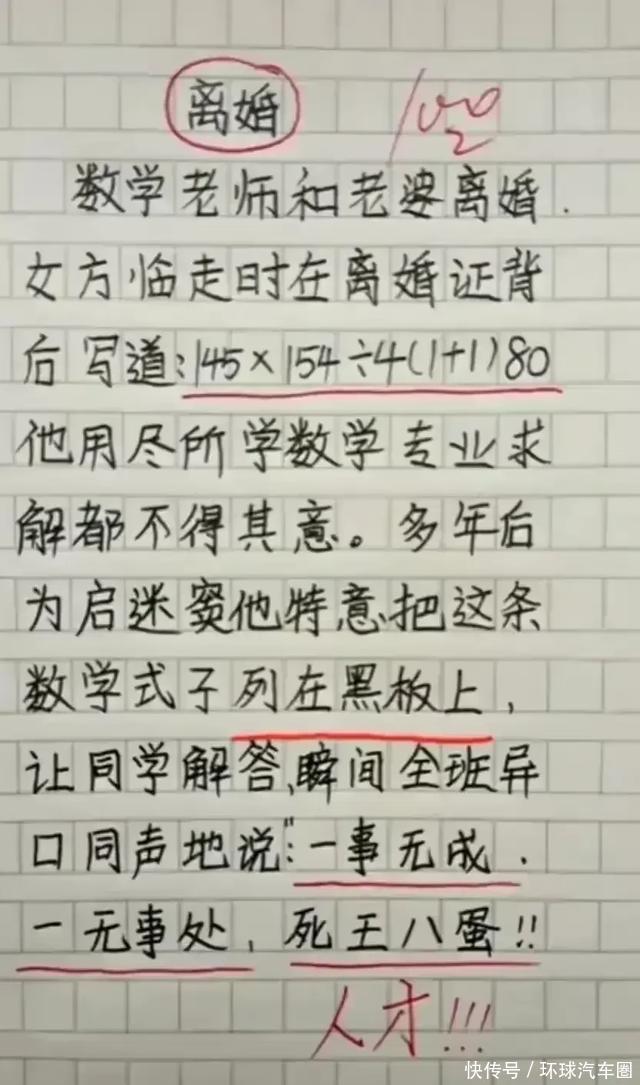 离婚 100
数学老师和老婆离婚.
女方临走时在离婚证背
后写道:145×154÷4(1+1)80
他用尽所学数学专业求
解都不得其意。多年后
为启迷窦他特意把这条
数学式子列在黑板上,
让同学解答,瞬间全班异
口同声地说:"一事无成.
一无事处,死王八蛋!!
人才!!!
快传号/环球汽车圈